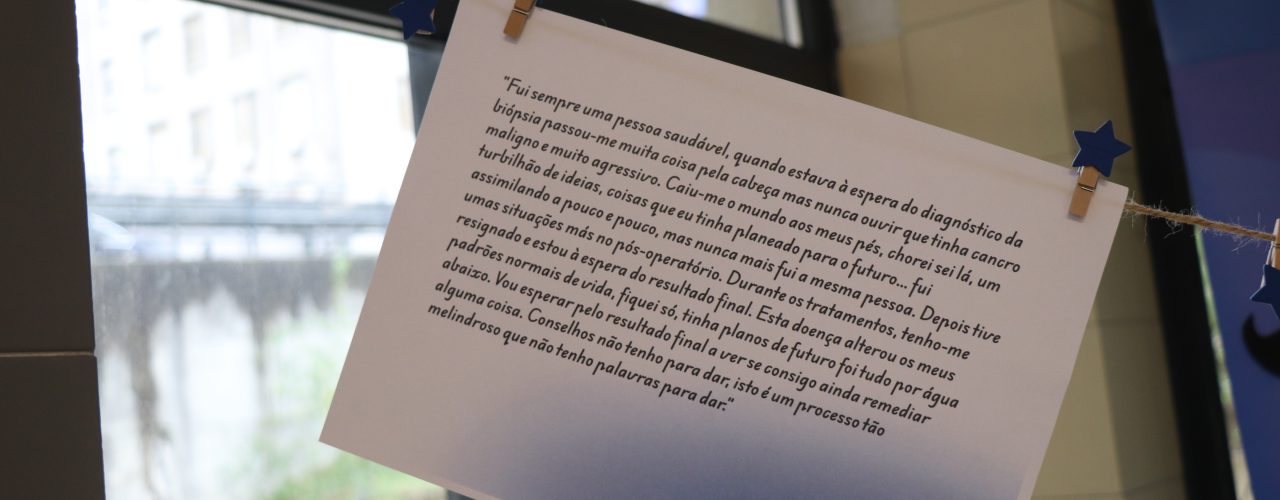 "Fui sempre uma pessoa saudável, quando estava à espera do diagnóstico da
biópsia passou-me muita coisa pela cabeça mas nunca ouvir que tinha cancro
maligno e muito agressivo. Caiu-me o mundo aos meus pés, chorei sei lá, um
turbilhão de ideias, coisas que eu tinha planeado para o futuro... fui
assimilando a pouco e pouco, mas nunca mais fui a mesma pessoa. Depois tive
umas situações más no pós-operatório. Durante os tratamentos, tenho-me
resignado e estou à espera do resultado final. Esta doença alterou os meus
padrões normais de vida, fiquei só, tinha planos de futuro foi tudo por água
abaixo. Vou esperar pelo resultado final a ver se consigo ainda remediar
alguma coisa. Conselhos não tenho para dar, isto é um processo tão
melindroso que não tenho palavras para dar."